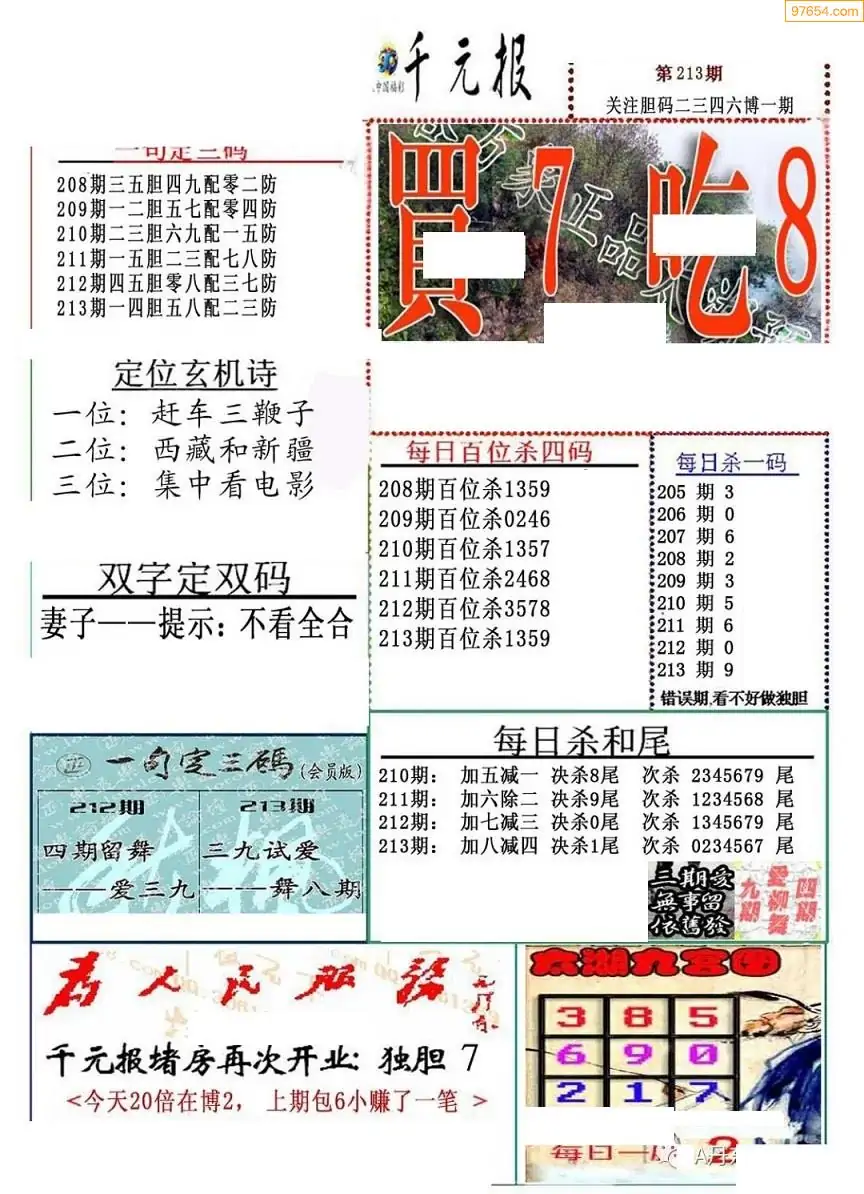 97654.com
千元报
中国福彩
第213期
关注胆码二三四六博一期
買7吃8
一句定三码
208期三五胆四九配零二防
209期一二胆五七配零四防
210期二三胆六九配一五防
211期一五胆二三配七八防
212期四五胆零八配三七防
213期一四胆五八配二三防
定位玄机诗
一位：赶车三鞭子
二位：西藏和新疆
三位：集中看电影
双字定双码
妻子——提示：不看全合
每日百位杀四码
208期百位杀1359
209期百位杀0246
210期百位杀1357
211期百位杀2468
212期百位杀3578
213期百位杀1359
每日杀一码
205 期 3
206 期 0
207 期 6
208 期 2
209 期 3
210 期 5
211 期 6
212 期 0
213 期 9
错误期,看不好做独胆
一句定三碼(会员版)
212期
四期留舞
——爱三九
213期
三九试爱
——舞八期
每日杀和尾
210期： 加五减一 决杀8尾 次杀 2345679 尾
211期： 加六除二 决杀9尾 次杀 1234568 尾
212期： 加七减三 决杀0尾 次杀 1345679 尾
213期： 加八减四 决杀1尾 次杀 0234567 尾
三期爱
無事留
依舊發
四期
愛柳舞
九期
为人民服務
千元报堵房再次开业: 独胆 7
<今天20倍在博2， 上期包6小赚了一笔 >
太湖九宫图
3 8 5
6 9 0
2 1 7
每日一